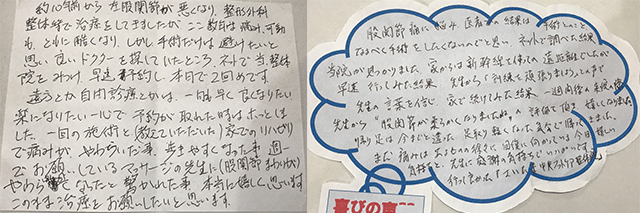 約10年前から左股関節が悪くなり、整形外科
整体等で治療をしてきましたが、ここ数ヶ月は痛み、可動
ともに酷くなり、しかし手術だけは避けたいと
思い、良いドクターを探していたところ、ネットで当、整体
院をみつけ、早速予約し、本日で2回めです。
遠方とか自由診療とかは、一日も早く良なりたい
楽になりたい一心で予約が取れた時はホッとしま
した。一回の施術と(教えていただいた)家でのリハビリ
で痛みが、やわらいだ事、歩きやすくなった事、週一
でお願いしているマッサージの先生に(股関節まわりが)
やわらなくなったと驚かれた事、本当に嬉しく思います
このまま治療をお願いしたいと思います。
股関節痛に悩み 医者の結果は 手術とのこと
なるべく手術をしたくないのでと思い ネットで調べた結果
当院が見つかりました 家からは新幹線を使い 遠距離でしたが
早速 行ってみた結果 先生から「訓練を頑張りましょう」
先生の言葉を信じ 家で続けてみた結果 一週間後の
先生から "股関節が柔らかくなりましたね" 評価して頂き 嬉しくなりました
帰り足は今までと違った 足取り軽くなった気分で帰ってきました。
まだ 痛みはあるものの
先生に感謝の気持ちで
行って良かった
喜びの声